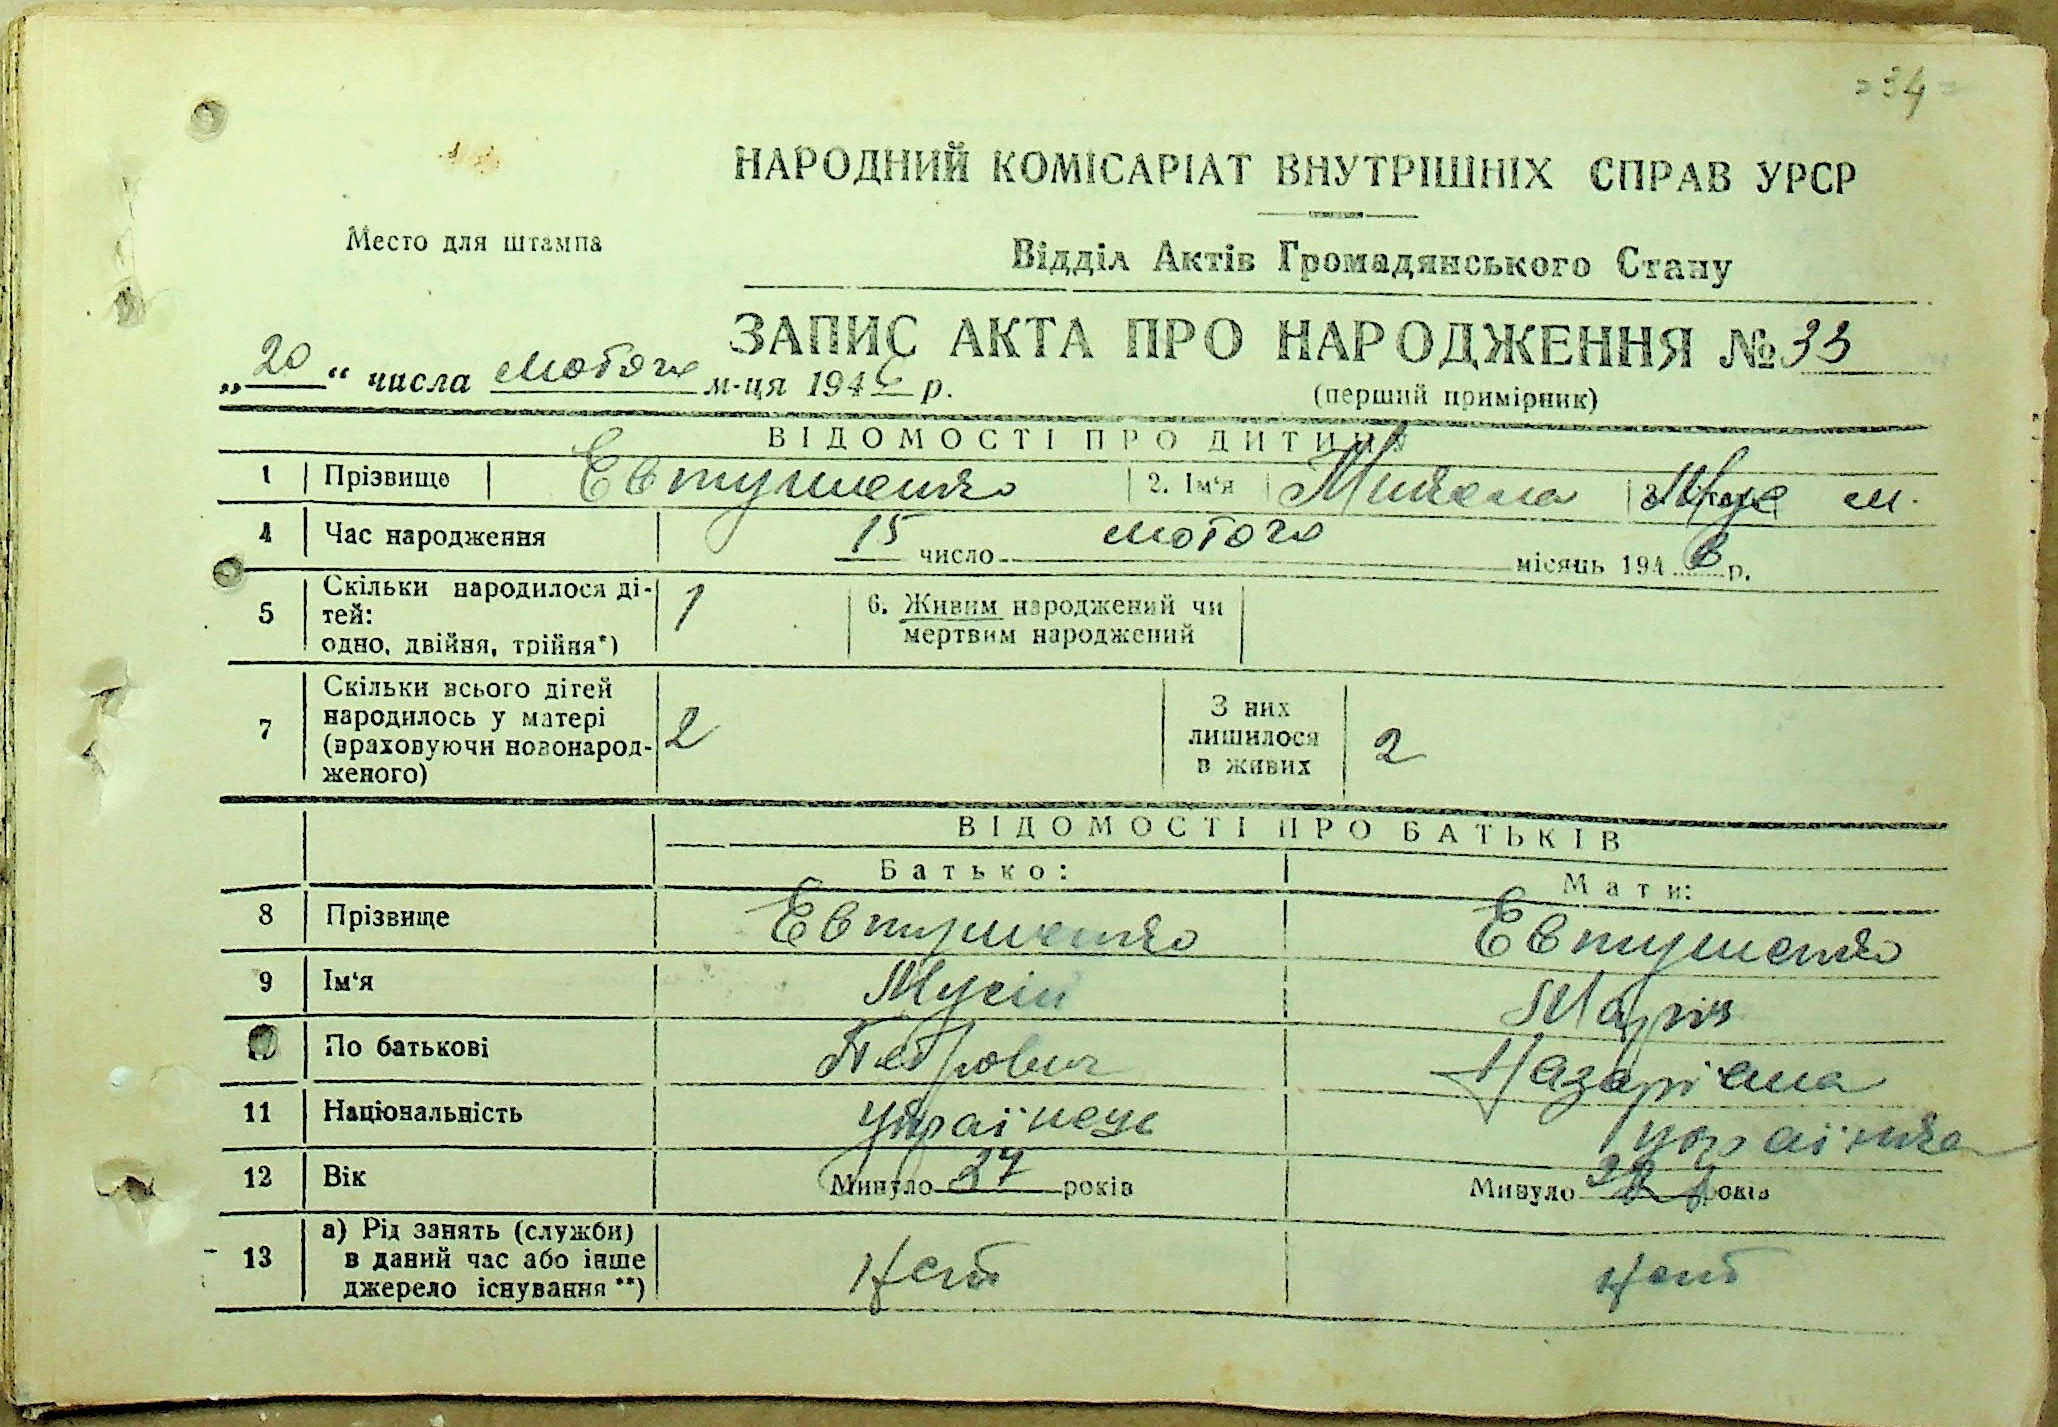 =34=
НАРОДНИЙ КОМІСАРІАТ ВНУТРІШНІХ СПРАВ УРСР
Место для штампа
Відділ Актів Громадянського Стану
ЗАПИС АКТА ПРО НАРОДЖЕННЯ №33
„20“ числа лютого м-ця 194 р.
(перший примірник)
ВІДОМОСТІ ПРО ДИТИНУ
1 Прізвище Евтушенко 2. Ім‘я Микола 3. Стать Муж м.
4 Час народження 15 число лютого місяць 194 р.
5 Скільки народилося ді-
тей:
одно, двійня, трійня*) 1 6. Живим народжений чи
мертвим народжений
7 Скільки всього дітей
народилось у матері
(враховуючи новонарод-
женого) 2 З них
лишилося
в живих 2
ВІДОМОСТІ ПРО БАТЬКІВ
Батько: Мати:
8 Прізвище Евтушенко Евтушенко
9 Ім‘я Мусій Марія
10 По батькові Петрович Назарівна
11 Національність українець українка
12 Вік Минуло 37 років Минуло років
13 а) Рід занять (служби)
в даний час або інше
джерело існування **)